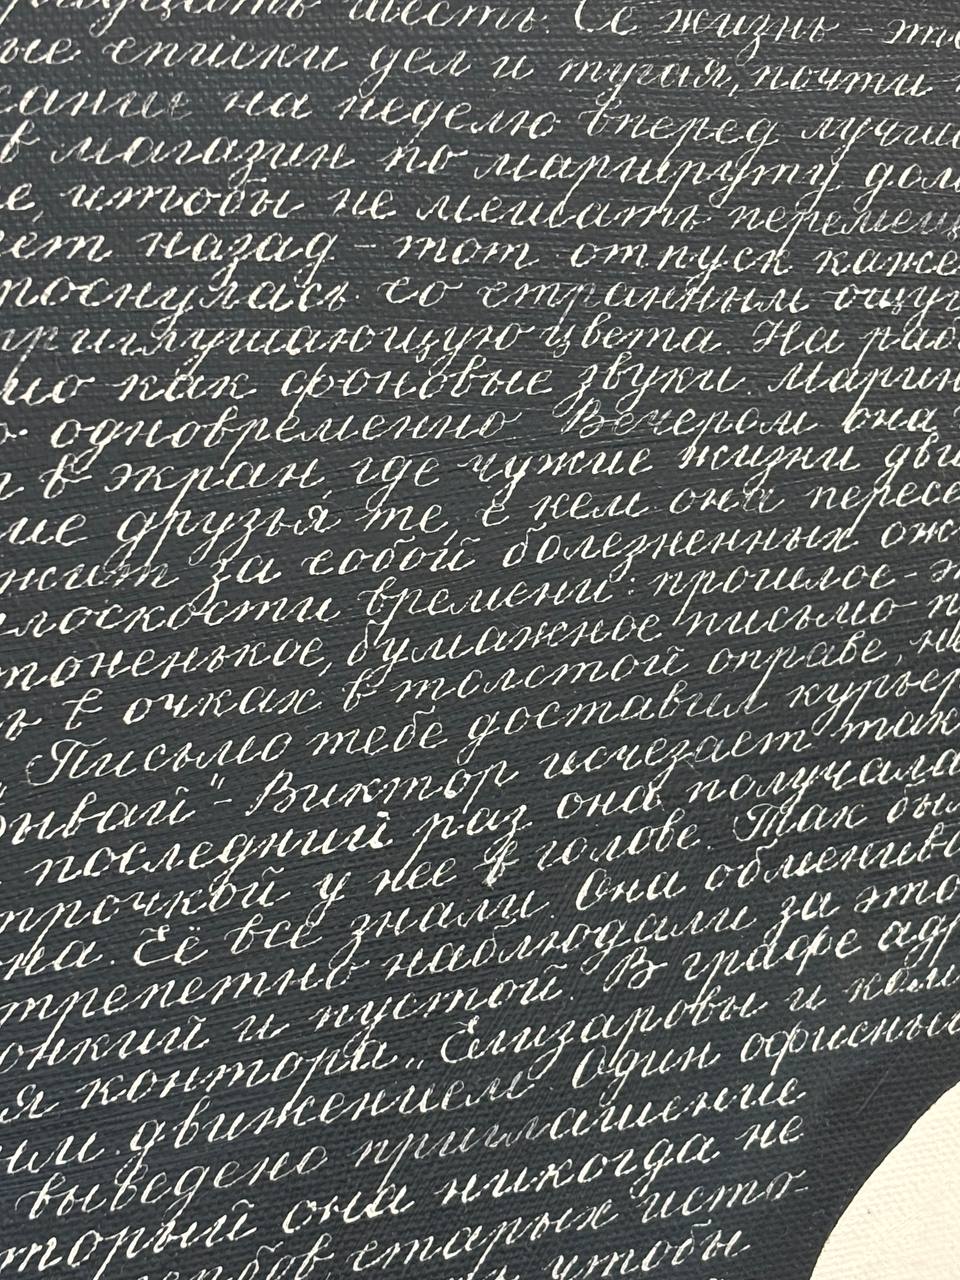 шесть. Её жизнь - это
ые списки дел и тугая, почти
сание на неделю вперед лучше
в магазин по маршруту
е, чтобы не мешать перемещ
лет назад - тот отпуск каже
проснулась со странным ощу
приглушающую цвета. На раб
как фоновые звуки. Марин
одновременно. Вечером она
в экран, где чужие жизни дви
ие друзья, те, с кем она пересе
жит за собой болезненных ож
плоскости времени: прошлое - э
тоненькое, бумажное письмо
в очках в толстой оправе, на
Письмо тебе доставил курьер
ывай" - Виктор исчезает так
последний раз она получала
трочкой у неё в голове. Так был
на. Её все знали. Она обменив
трепетно наблюдали за это
онкий и пустой. В графе адр
я контора „Елизаровы и ком
ым движением. Один офисный
выведено приглашение
оторый она никогда не
старых исто-
чтобы